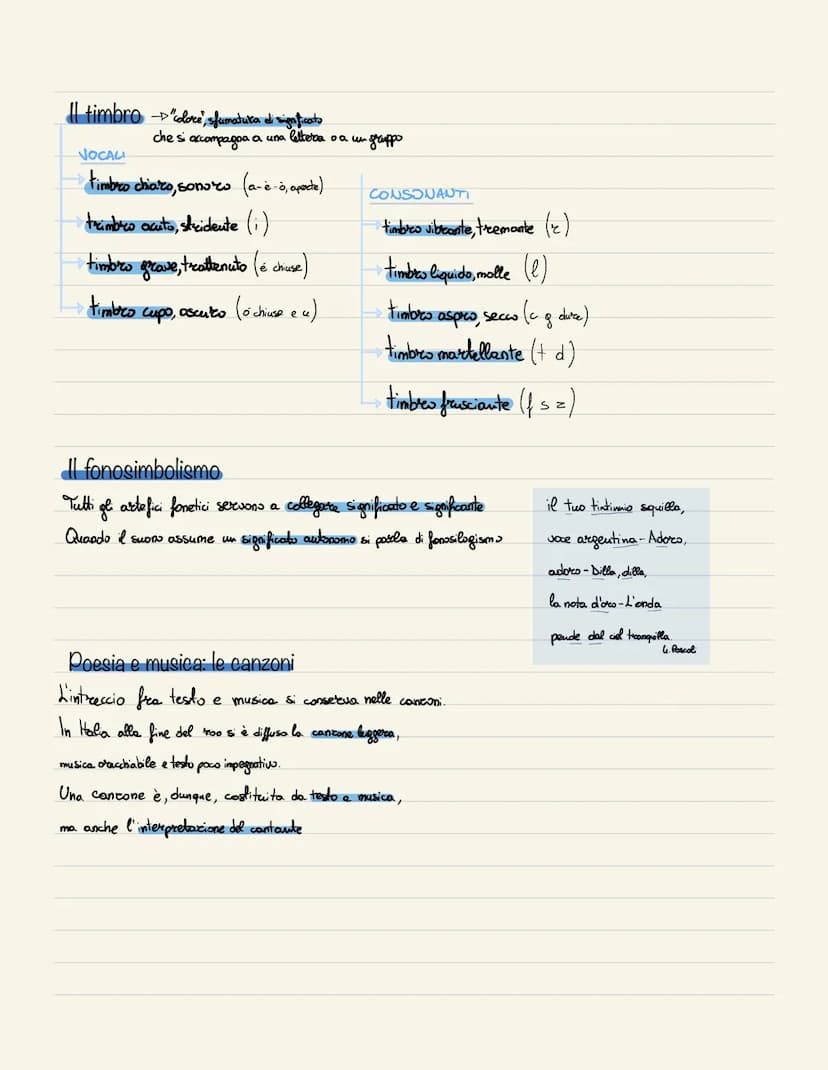 Il timbro → "colore", sfumatura di significato
che si accompagna a una lettera o a un gruppo
VOCALI
timbro chiaro, sonoro (a-è-ò, aperte)
trimbro acuto, stridente (i)
timbro grave, trattenuto (é chiuse)
timbro cupo, oscuro (ó chiuse e u)
CONSONANTI
timbro vibrante, tremante (r)
timbro liquido, molle (l)
timbro aspro, secco (c g dure)
timbro martellante (t d)
timbro frusciante (f s z)
Il fonosimbolismo
Tutti gli artefici fonetici servono a collegare significato e significante
Quando il suono assume un significato autonomo si parla di fonosilogismo
il tuo tintinnio squilla,
voce argentina - Adoro,
adoro - Dilla, dilla,
la nota d'oro - L'onda
pende dal ciel tranquilla
G. Pascoli
Poesia e musica: le canzoni
L'intreccio fra testo e musica si conserva nelle canzoni.
In Italia alla fine del '800 si è diffusa la canzone leggera,
musica orecchiabile e testo poco impegnativo.
Una canzone è, dunque, costituita da testo e musica,
ma anche l'interpretazione del cantante